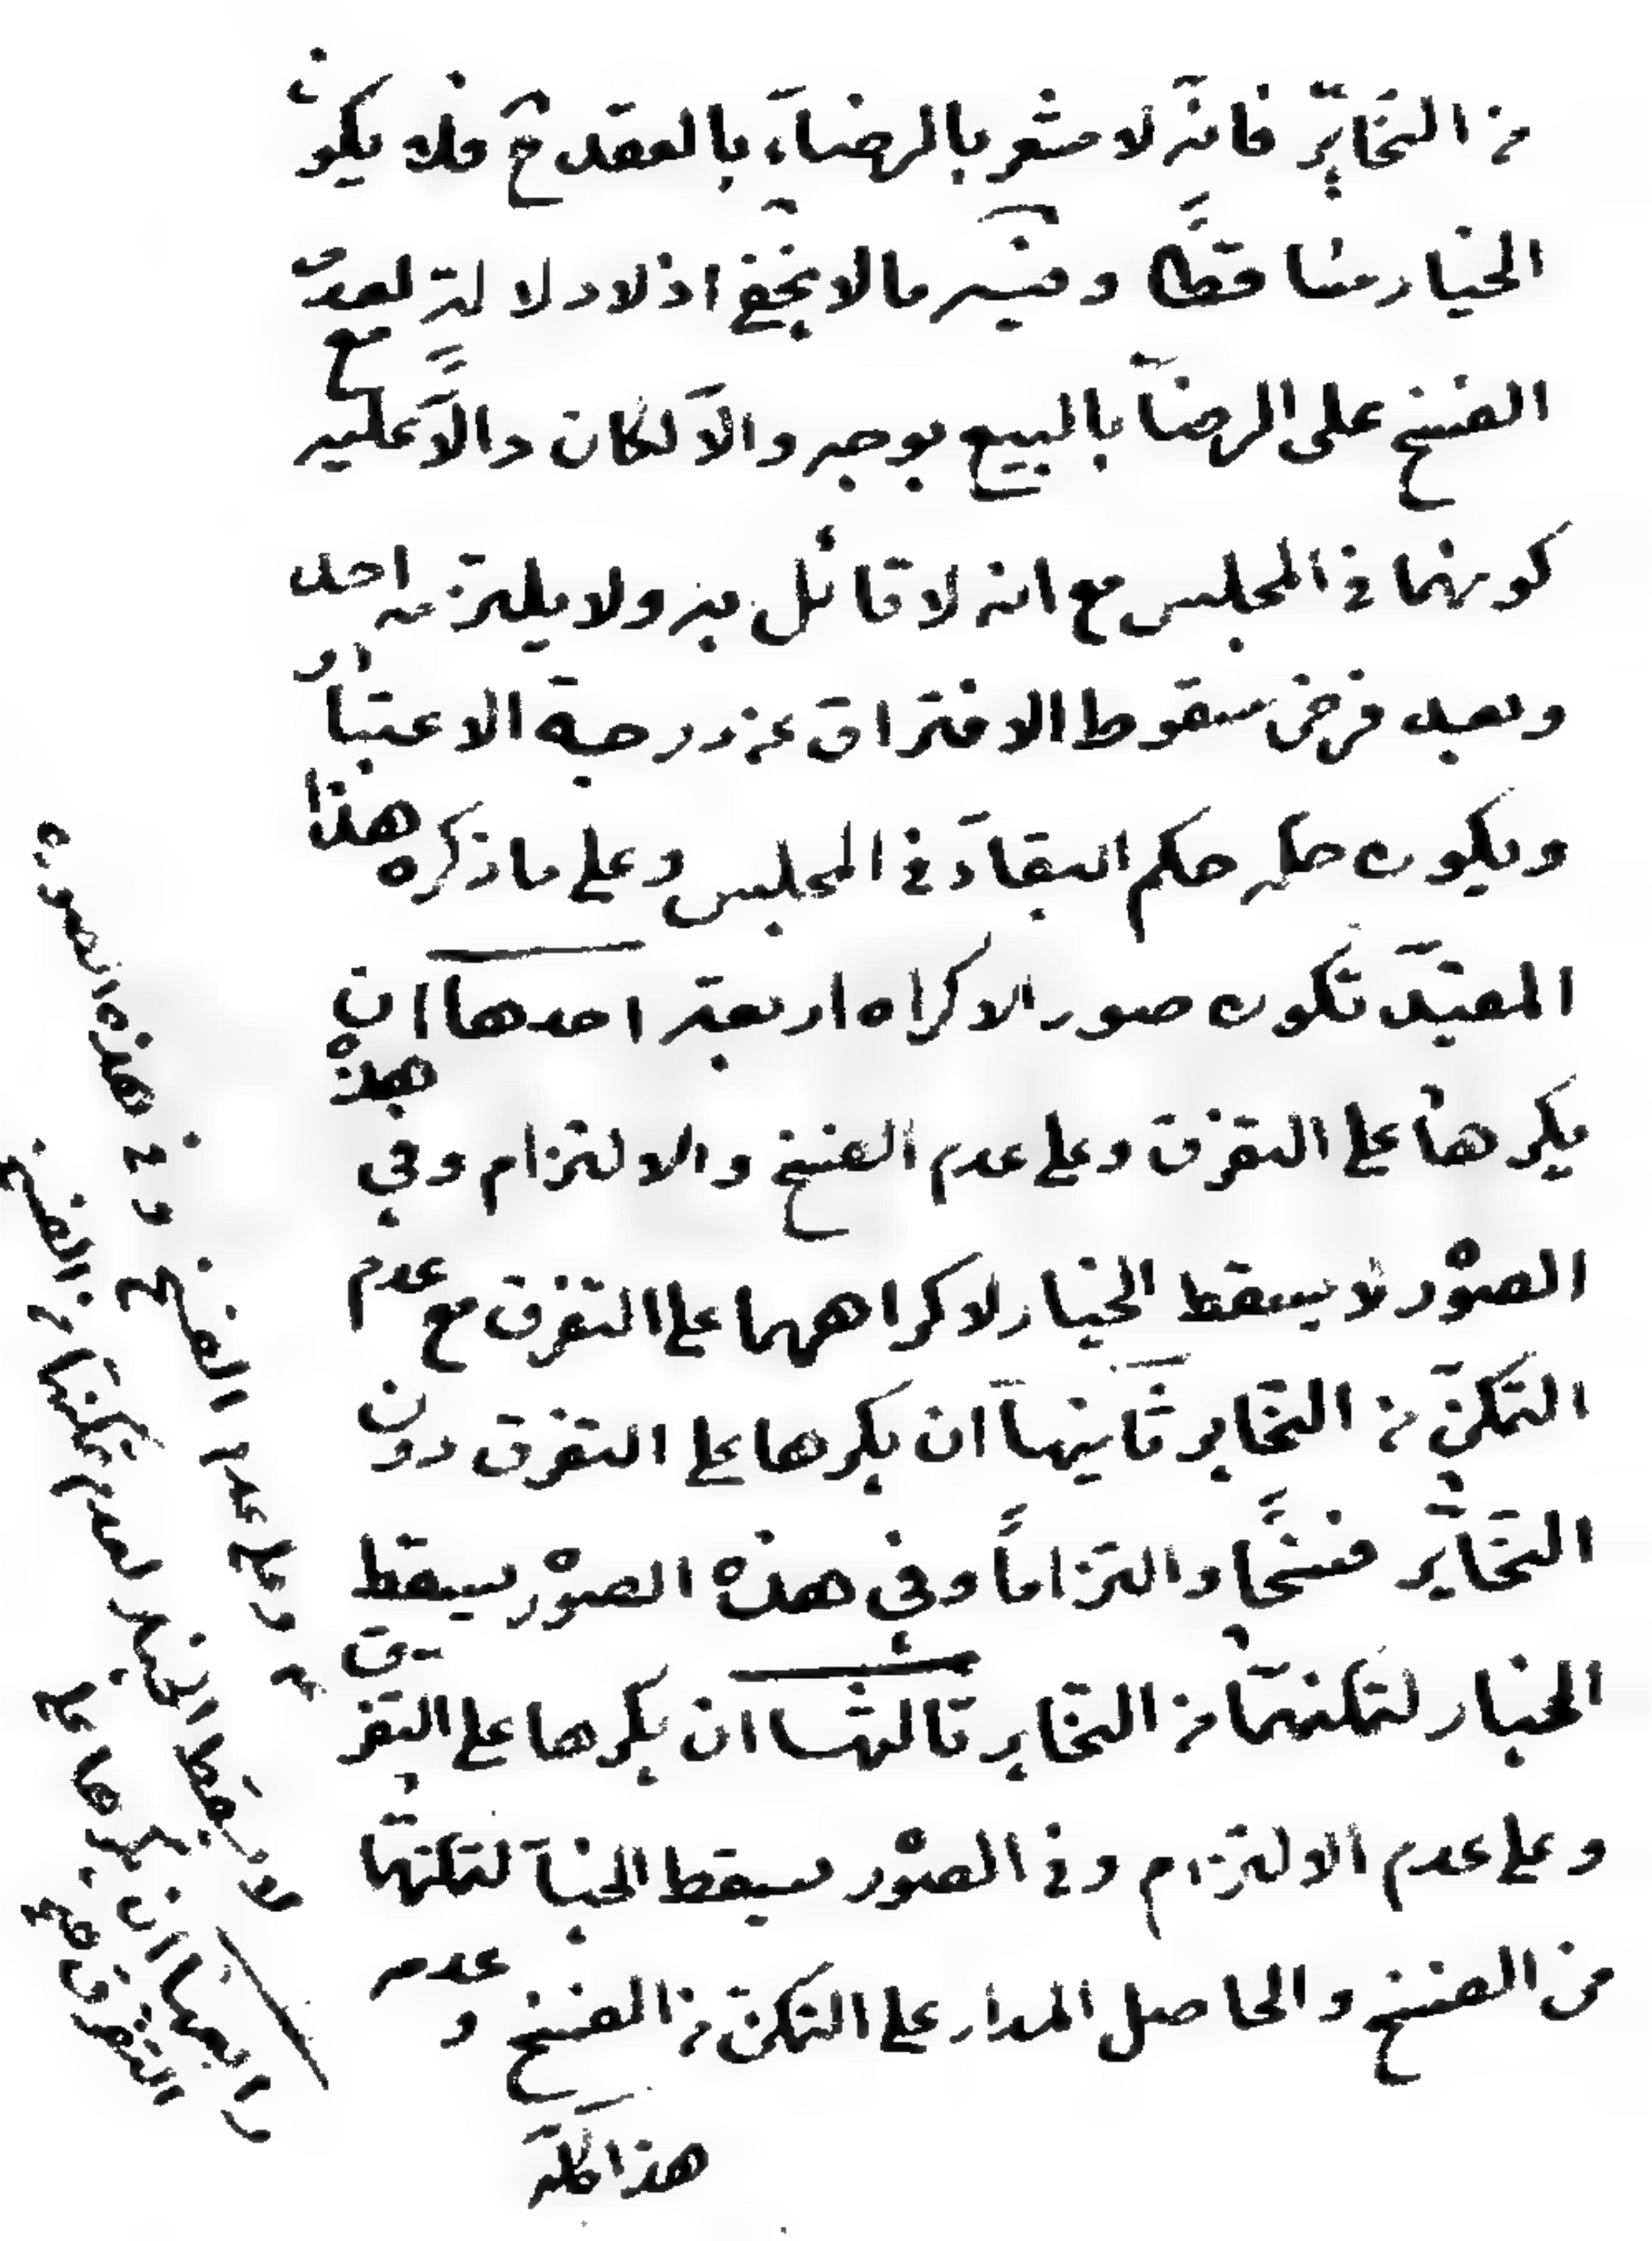 من التخاير فانه لا مشعر بالرضاء بالعقد ح فلا يكون
الخيار ساقطا وفيه ما لا يخفى اذ لا دلالة لعدم
الفسخ على الرضا بالبيع بوجه والا لكان دالا عليه مع
كونهما في المجلس مع انه لا قائل به ولا يلتزمه احد
وبعد فرض سقوط الافتراق عن درجة الاعتبار
ويكون حكمه حكم البقاء في المجلس وعلى ما ذكره هذا
المفيد تكون صور الاكراه اربعة احدها ان
يكرها على التفرق وعلى عدم الفسخ والالتزام وفي هذه
الصور لا يسقط الخيار لاكراههما على التفرق مع عدم
التمكن من التخاير ثانيها ان يكرها على التفرق دون
التخاير فسخا والتزاما وفي هذه الصور يسقط
الخيار لتمكنهما من التخاير ثالثها ان يكرها على التفرق
وعلى عدم الالتزام وفي الصور يسقط الخيا لتمكنهما
من الفسخ والحاصل المدار على التمكن من الفسخ و عدمه
هذا كله
وعلى عدم الفسخ وفي هذه الصورة
لا يسقط الخيار لعدم تمكنهما من الفسخ
رابعها ان يكرها على
التفرق